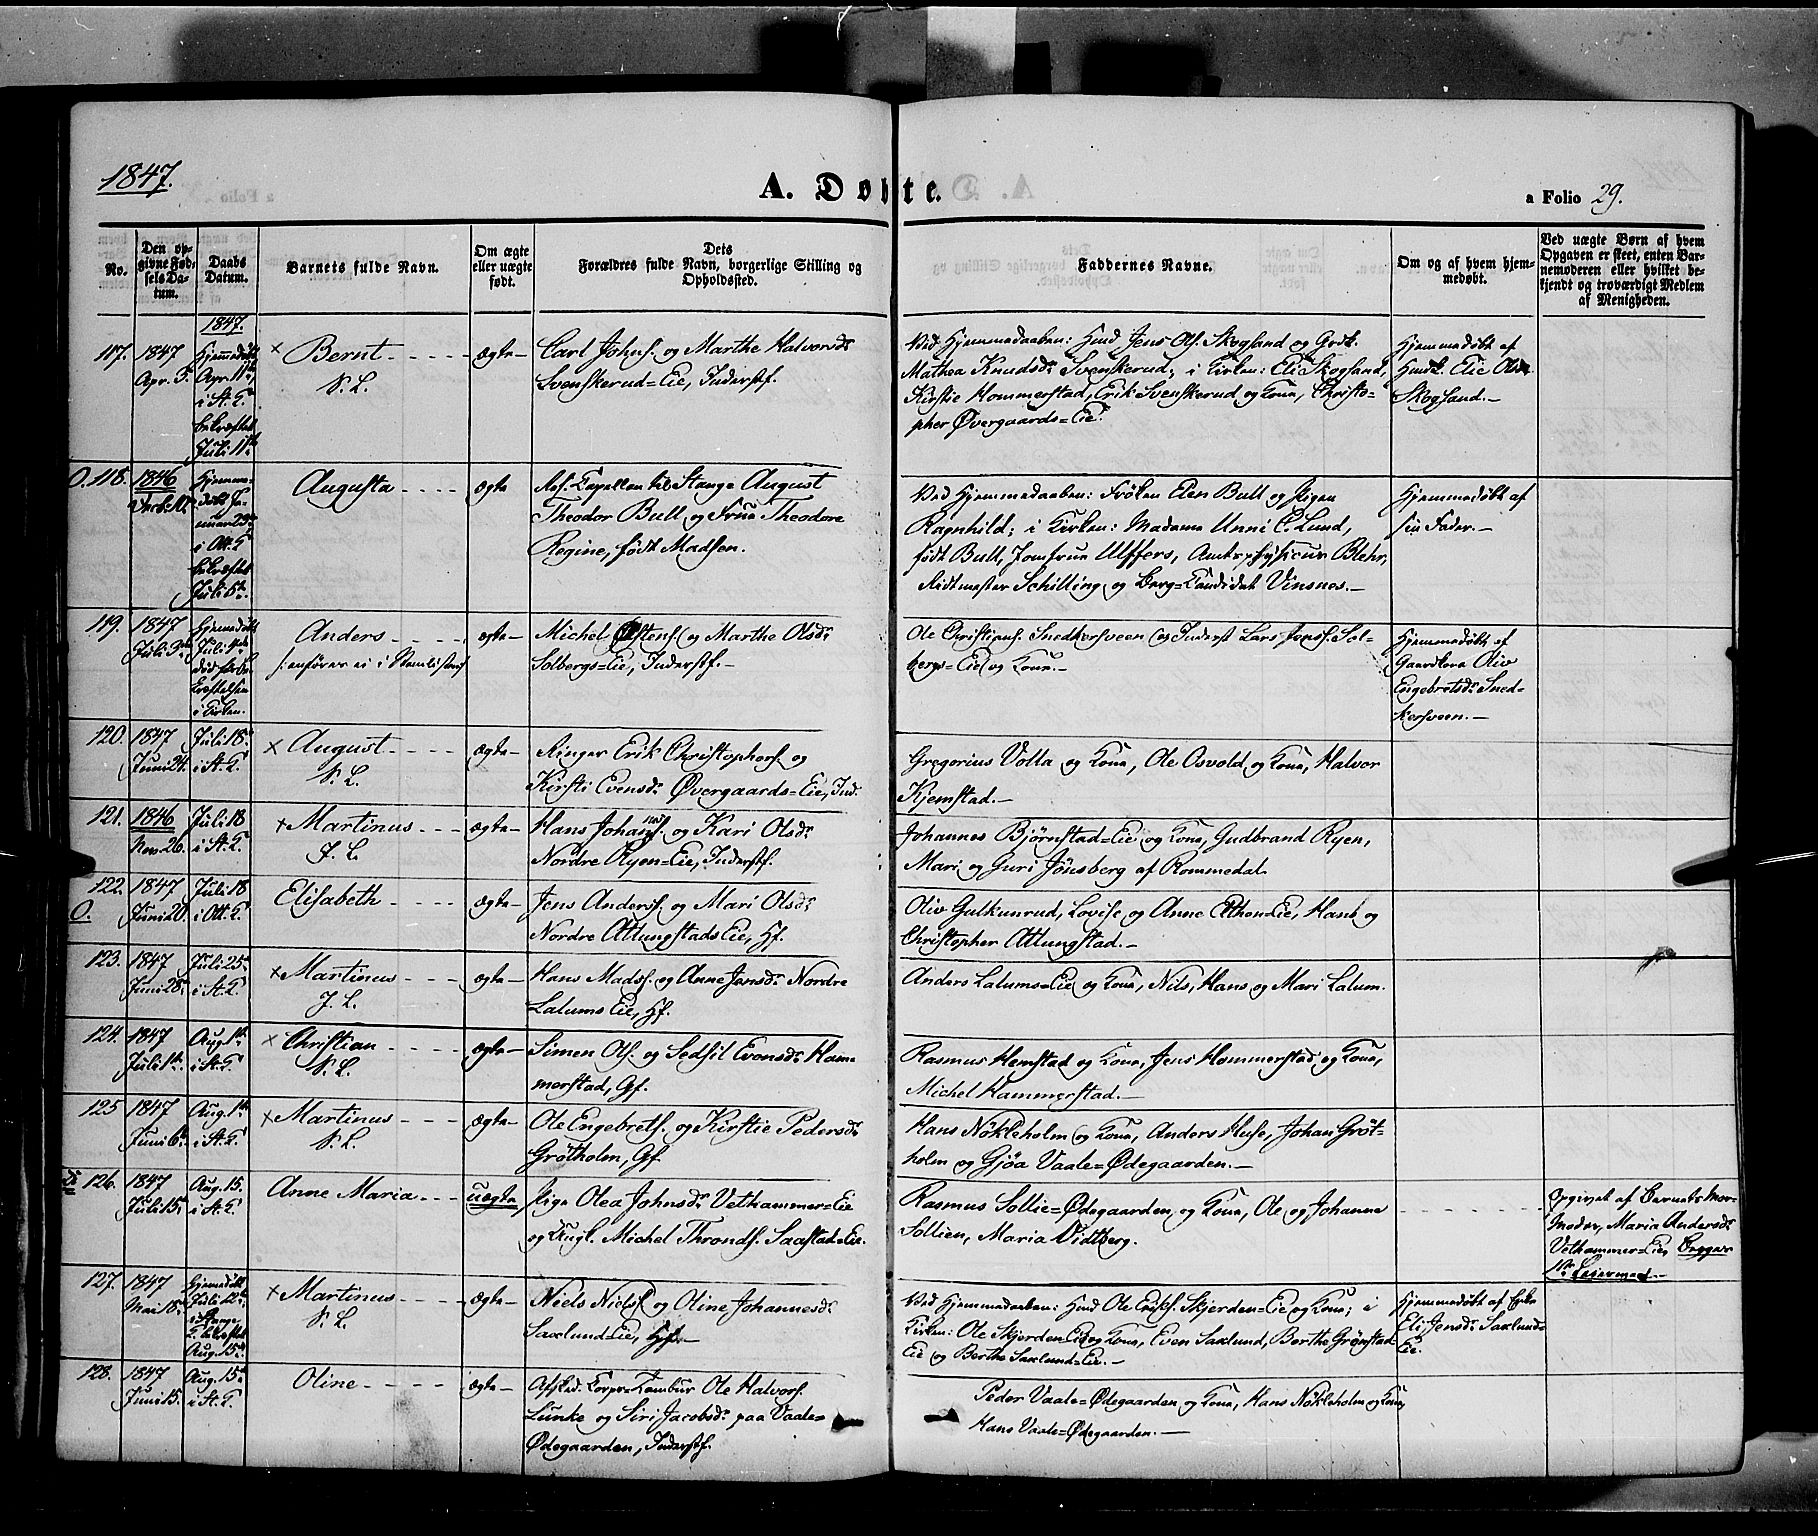 1847.
A. Döbte.
a Folio 29.
No.
Den op-
givne Fød-
sels Da-
tum.
Daabs
Datum.
Barnets fulde Navn.
Om ægte
eller uægte
født.
Dets
Forældres fulde Navn, borgerlige Stilling og
Opholdssted.
Faddernes Navne.
Om og af hvem hjem-
medøbt.
Ved uægte Børn af hvem
Opgaven er skeet, enten Bar-
nemoderen eller hvilket be-
kjendt og troværdigt Medlem
af Menigheden.
1847.
117.
1847
Apr. 3.
Hjemmedöbt
Apr. 11te
i St. K.
bekræftet
Juli 11te
× Bernt
V. L.
ægte
Carl Johns. og Marthe Halvorsdr
Svenskerud=Eie, Inderstf.
Ved Hjemmedaaben: Huusm. Jens Ols. Skogland og
Mathea Knudsdr Svenskerud; i Kirken: Eli Skogland,
Kirstie Hommerstad, Erik Svenskerud og Kone, Christo-
pher Övergaards=Eie.
Hjemmedöbt af
Elie Olsdr
Skogland.
O. 118.
1846
Decb. 10.
Hjemme-
döbt Ja-
nuar 23de
i Ott. K.
bekræftet
Juli 5te
Augusta
ægte
Res. Capellan til Stange August
Theodor Bull og Frue Theodore
Regine, født Madsen.
Ved Hjemmedaaben: Fröken Elen Bull og Pigen
Ragnhild; i Kirken: Madame Unni C. Lund,
født Bull, Jomfrue Ulffers, Amtsphysicus Blehr,
Ridtmester Schilling og Berg=Candidat Vinsnes.
Hjemmedöbt af
sin Fader.
119.
1847
Juli 3die
Hjemmedöbt
Juli 4de
död för be-
kræftelsen
i Kirken.
Anders
anföres ei i Navnelisten
ægte
Michel Östens. og Marthe Olsdr
Solbergs=Eie, Inderstf.
Ole Christians. Snedkersveen og Inderst Lars Jens. Sol-
bergs=Eie og Kone.
Hjemmedöbt af
Gaardkona Oliv
Engebretsdr Sned-
kersveen.
120.
1847
Juni 24.
Juli 18.
i St. K.
× August
V. L.
ægte
Ringer Erik Christophers. og
Kirsti Evensdr Övergaards=Eie, Ind.
Gregorius Volla og Kone, Ole Osvold og Kone, Halvor
Kjemstad.
121.
1846
Nov. 26.
Juli 18
i St. K.
× Martinus
J. L.
ægte
Hans Johannes. og Kari Olsdr
Nordre Ryen=Eie, Inderstf.
Johannes Bjørnstad=Eie og Kone, Gudbrand Ryen,
Mari og Guri Jönsberg af Rommedal.
122.
O.
1847
Juni 20.
Juli 18
i Ott. K.
Elisabeth
ægte
Jens Anders. og Mari Olsdr
Nordre Ottungstads Eie, Hf.
Oliv Gulkunrud, Lovise og Anne Ethen Eie, Hans og
Christopher Ottungstad.
123.
1847
Juni 28.
Juli 25.
i St. K.
× Martinus
J. L.
ægte
Hans Mads. og Anne Jensdr Nordre
Lalums Eie, Hf.
Anders Lalums=Eie og Kone, Nils, Hans og Mari Lalum.
124.
1847
Juli 1te
Aug. 1te
i St. K.
× Christian
V. L.
ægte
Simen Ols. og Sedsil Evensdr Ham-
merstad, Gf.
Rasmus Hemstad og Kone, Jens Hommerstad og Kone,
Michel Hammerstad.
125
1847
Juni 6te
Aug. 1te
i St. K.
× Martinus
V. L.
ægte
Ole Engebrets. og Kirstie Pedersdr
Grötholm, Gf.
Hans Nökleholm og Kone, Anders Huse, Johan Gröt-
holm og Gjöa Vaale=Ödegaarden.
126.
1847
Juli 15.
Aug. 15.
i St. K.
Anne Maria
uægte
Pige Olea Johnsdr Vethammer=Eie
og Ungk. Michel Thronds. Saastad=Eie.
Rasmus Sollie=Ödegaarden og Kone, Ole og Johanne
Sollien, Maria Vidtberg.
Opgivet af Barnets Mor-
moder, Maria Andersdr
Vethammer=Eie, Begges
1te Leiermaal.
127.
1847
Mai 18.
Hjemmedöbt
Juli 12te
i Stange
K. bekræftet
Aug. 15de
× Martinus
V. L.
ægte
Niels Niels. og Oline Johannesdr
Saxlund=Eie, Hf.
Ved Hjemmedaaben: Huusm. Ole Skjerden=Eie og Kone; i
Kirken: Ole Skjerden Eie og Kone, Even Saxlund, Berthe Grönstad
Eie og Berthe Saxlund=Eie.
Hjemmedöbt af Enke
Eli Jensdr Saxlunds
Eie.
128.
1847
Juni 15.
Aug. 15.
i St. K.
Oline
ægte
Afsked. Corps=Tambur Ole Halvors.
Lunke og Siri Jacobsdr paa Vaale=
Ödegaarden, Inderstf.
Peder Vaale=Ödegaarden og Kone, Hans Nökleholm og Kone,
Hans Vaale=Ödegaarden.